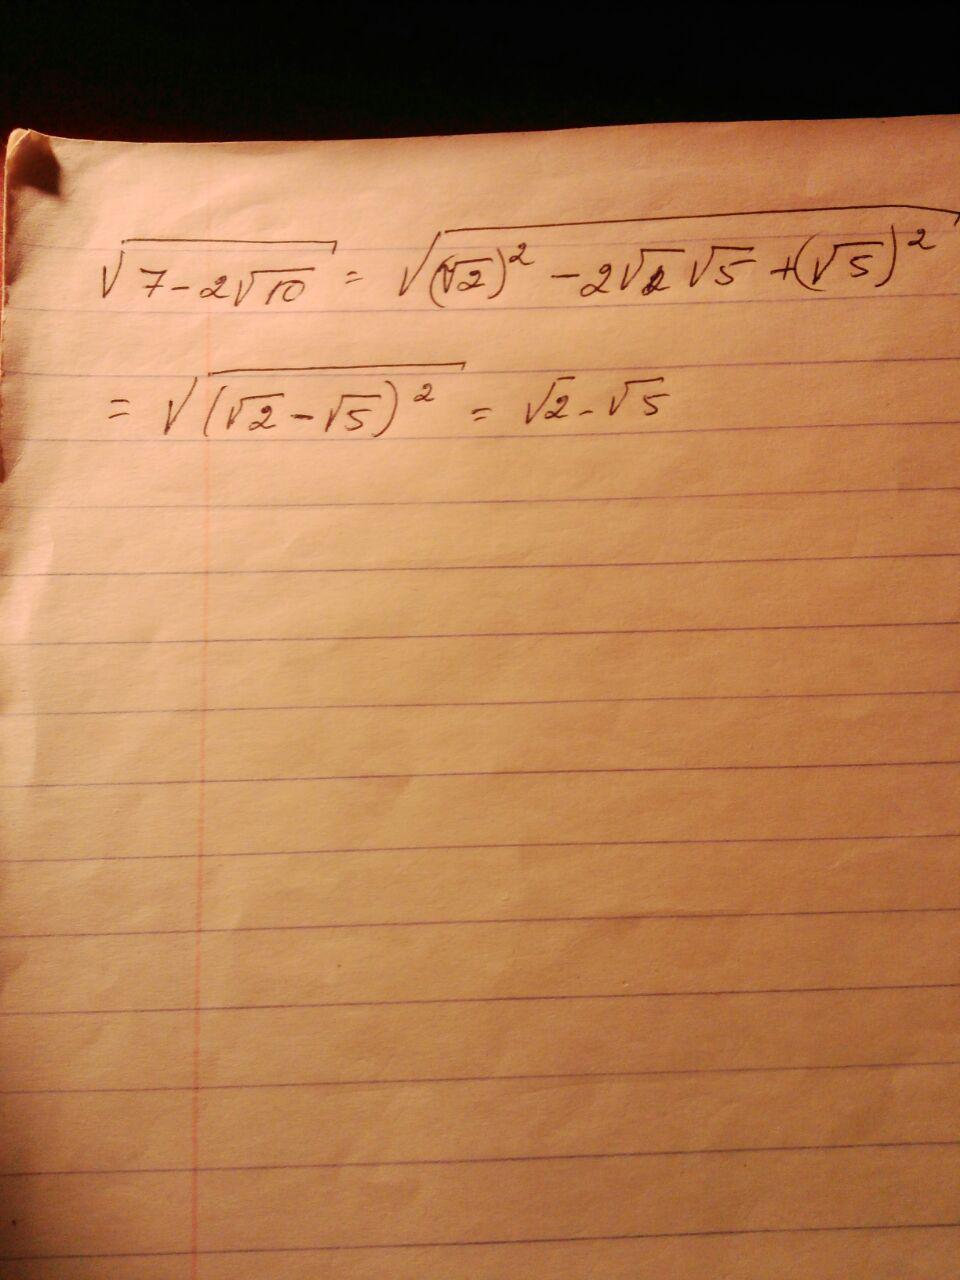 √(7-2√10) = √((√2)² - 2√2 √5 + (√5)²)
= √((√2 - √5)²) = √2 - √5